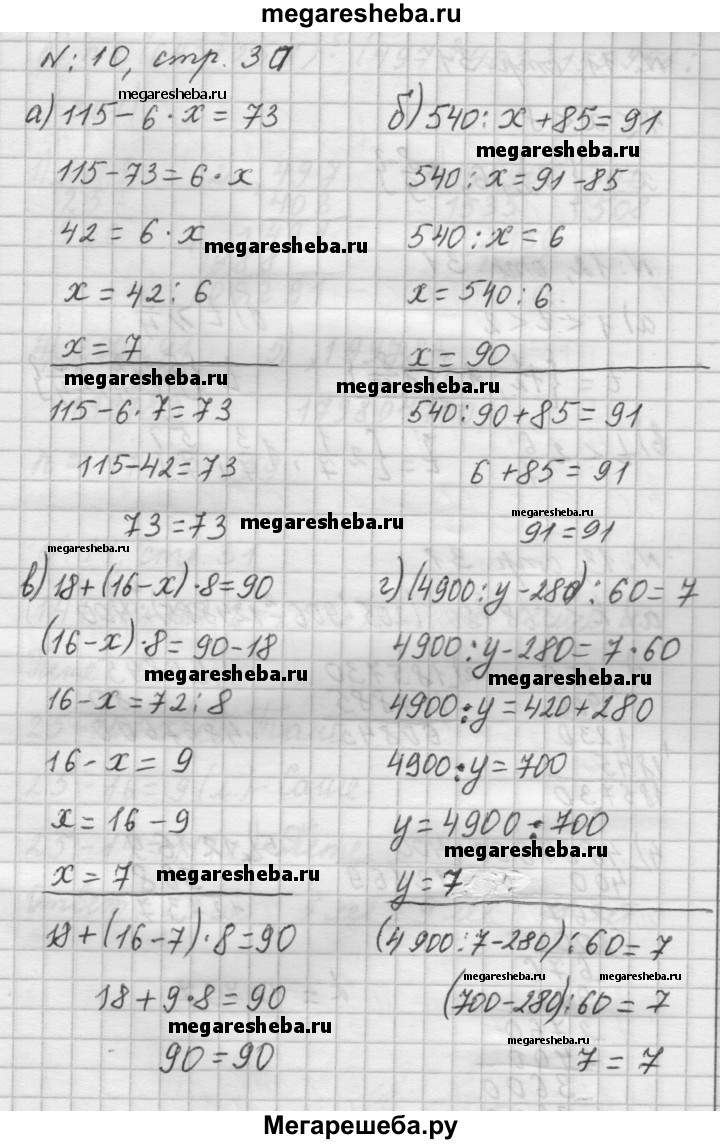 megaresheba.ru
№: 10, стр. 30
megaresheba.ru
а) 115 - 6 · x = 73
115 - 73 = 6 · x
42 = 6 · x
megaresheba.ru
x = 42 : 6
x = 7
megaresheba.ru
115 - 6 · 7 = 73
115 - 42 = 73
73 = 73
megaresheba.ru
б) 540 : x + 85 = 91
megaresheba.ru
540 : x = 91 - 85
540 : x = 6
x = 540 : 6
x = 90
megaresheba.ru
540 : 90 + 85 = 91
6 + 85 = 91
megaresheba.ru
91 = 91
megaresheba.ru
в) 18 + (16 - x) · 8 = 90
(16 - x) · 8 = 90 - 18
megaresheba.ru
16 - x = 72 : 8
16 - x = 9
x = 16 - 9
x = 7
megaresheba.ru
18 + (16 - 7) · 8 = 90
18 + 9 · 8 = 90
megaresheba.ru
90 = 90
г) (4900 : y - 280) : 60 = 7
4900 : y - 280 = 7 · 60
megaresheba.ru
4900 : y = 420 + 280
4900 : y = 700
y = 4900 : 700
megaresheba.ru
y = 7
(4900 : 7 - 280) : 60 = 7
megaresheba.ru megaresheba.ru
(700 - 280) : 60 = 7
megaresheba.ru
7 = 7
Мегарешеба.ру